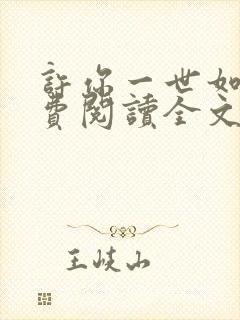 許你一世如
費閱讀全文
王岐山